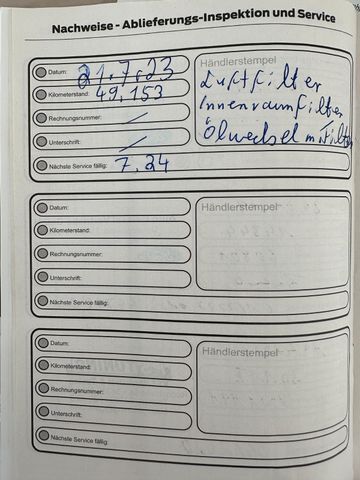 Nachweise - Ablieferungs-Inspektion und Service
Datum: 21.7.23
Kilometerstand: 49.153
Rechnungsnummer: /
Unterschrift: /
Nächste Service fällig: 7.24
Händlerstempel
Luftfilter
Innenraumfilter
Ölwechsel mit Filter
Datum:
Kilometerstand:
Rechnungsnummer:
Unterschrift:
Nächste Service fällig:
Händlerstempel
Datum:
Kilometerstand:
Rechnungsnummer:
Unterschrift:
Nächste Service fällig:
Händlerstempel